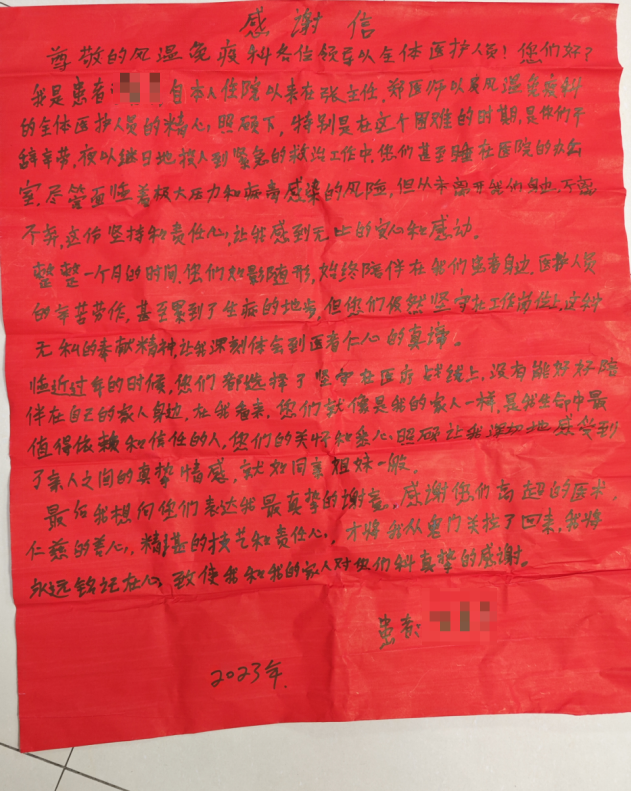 感谢信
尊敬的风湿免疫科各位领导以全体医护人员！您们好？
我是患者 ，自本人住院以来在张主任，郑医师以及风湿免疫科
的全体医护人员的精心照顾下，特别是在这个困难的时期，是你们不
辞辛劳，夜以继日地投入到紧急的救治工作中，您们甚至睡在医院的办公
室，尽管面临着极大压力和病毒感染的风险，但从未离开我们身边，不离
不弃，这份坚持和责任心，让我感到无比的安心和感动。
整整一个月的时间，您们如影随形，始终陪伴在我们患者身边，医护人员
的辛苦劳作，甚至累到了生病的地步，但你们依然坚守在工作岗位上，这种
无私的奉献精神，让我深刻体会到医者仁心的真谛。
临近过年的时候，您们都选择了坚守在医疗战线上，没有能好好陪
伴在自己的家人身边，在我看来，您们就像是我的家人一样，是我生命中最
值得依赖和信任的人，您们的关怀和悉心照顾让我深切地感受到
了亲人之间的真挚情感，就如同亲姐妹一般。
最后我想向您们表达我最真挚的谢意，感谢您们高超的医术，
仁慈的善心，精湛的技艺和责任心，才将我从鬼门关拉了回来，我将
永远铭记在心，致使我和我的家人对您们科真挚的感谢。
患者：
2023年.